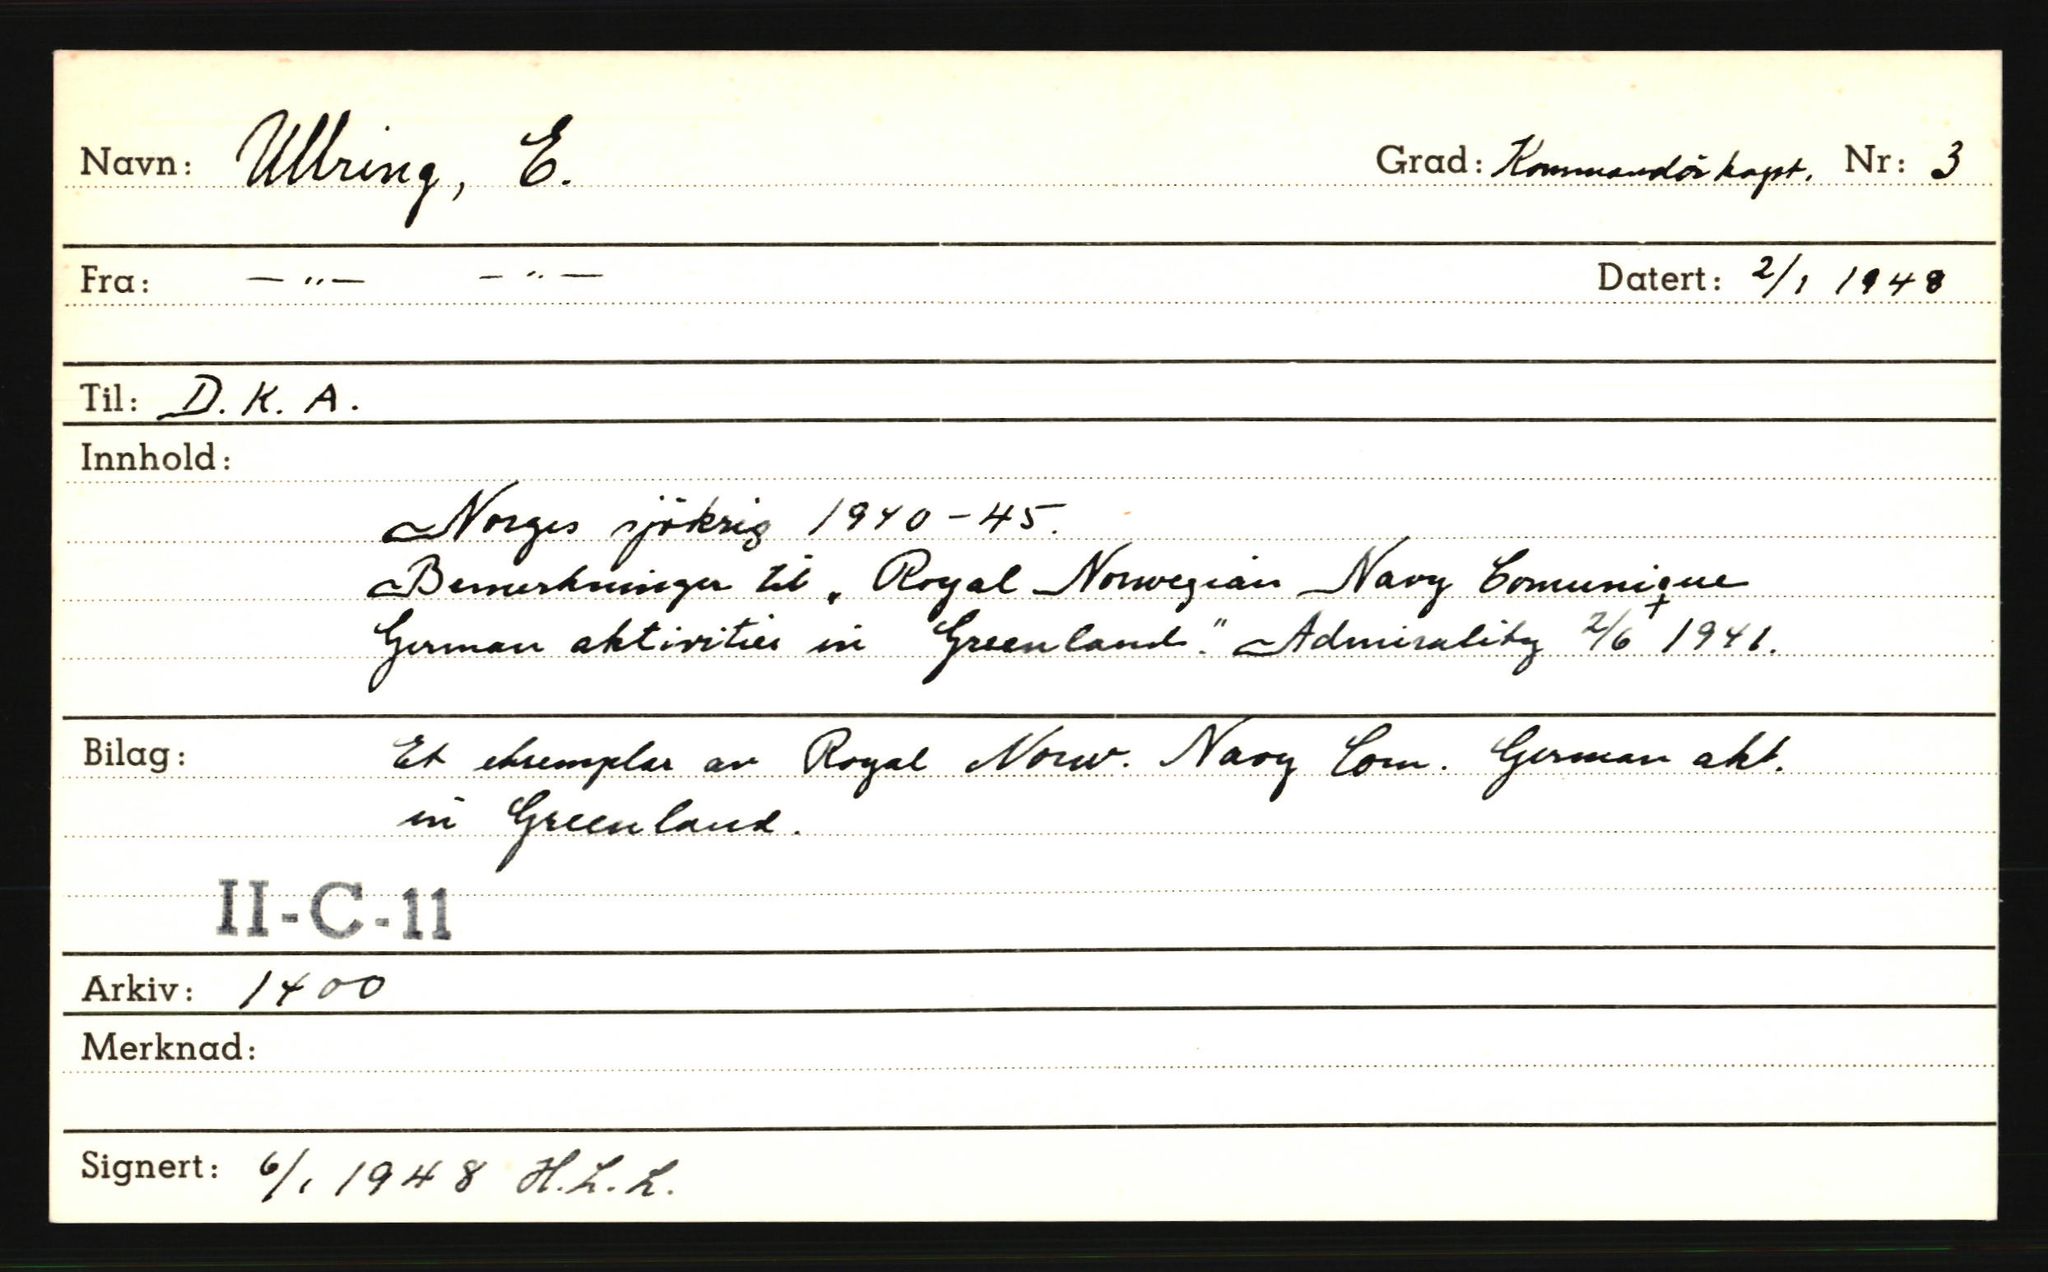 Navn: Ullring, E. Grad: Kommandörkapt. Nr: 3
Fra: — " — — " — Datert: 2/1 1948
Til: D. K. A.
Innhold:
Norges sjökrig 1940-45.
Bemerkninger til „Royal Norwegian Navy Comunique
German aktivities in Greenland." Admirality 2/6 + 1941.
Bilag: Et eksemplar av Royal Norw. Navy Com. German akt.
in Greenland.
II-C-11
Arkiv: 1400
Merknad:
Signert: 6/1 1948 H.L.L.